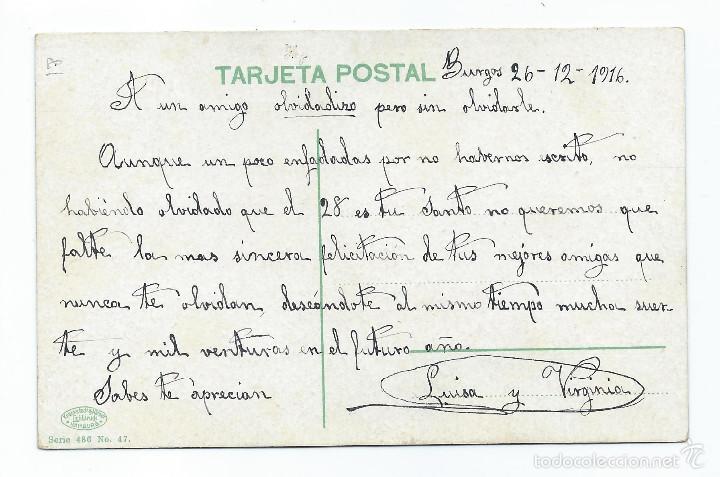 TARJETA POSTAL Burgos 26-12-1916.
A un amigo olvidadizo pero sin olvidarle.
Aunque un poco enfadadas por no habernos escrito, no
habiendo olvidado que el 28 es tu santo no queremos que
falte la mas sincera felicitación de tus mejores amigas que
nunca te olvidan deseándote al mismo tiempo mucha suer-
te y mil venturas en el futuro año.
Sabes te aprecian Luisa y Virginia
Serie 486 No. 47.
todocoleccion.net